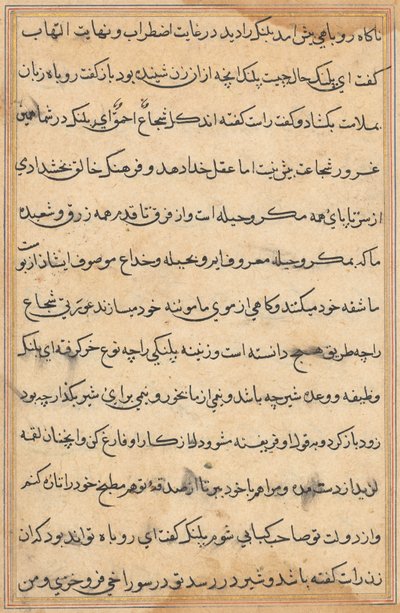 ناکاه روباهی پیش امد پلنک را دید در غایت اضطراب و نهایت التهاب
کفت ای پلنک حال چیست پلنک انچه از ان زن شنیده بود باز کفت روباه زبان
بملامت بکشاد و کفت راست کفته اند کل شجاع احمق ای پلنک در شما همین
غرور شجاعت بیش نیست اما عقل خداد هد و فرهنک خالق بخشد ادمی
از سر تا پای همه مکر و حیله است و از فرق تا قدم همه زرق و شعبده
ما که بمکر و حیله معروفایم و بحیله و خداع موصوف ایشان از پوست
ما شقه خود میکنند و کاهی از موی ما موئینه خود میسازند عورتی شجاع
را چه طریق هیچ دانسته است و زنینه پلنکی را چه نوع خر کرفته ای پلنک
وظیفه و وعده شیر چه باشد و نیمی از ما بخور و نیمی برای شیر بکذار چه بود
زود باز کرد و بقول او فریفته شو و دل از کار او فارغ کن و انچنان لقمه
لذید از دست مده و مرا هم با خود ببر تا از صدقه تو هم مطبخ خود را تازه کنم
و از دولت تو صاحب کبابی شوم پلنک کفت ای روباه تواند بود که ان
زن راست کفته باشد و شیر در رسد تو در سوراخی فرو خزی و من